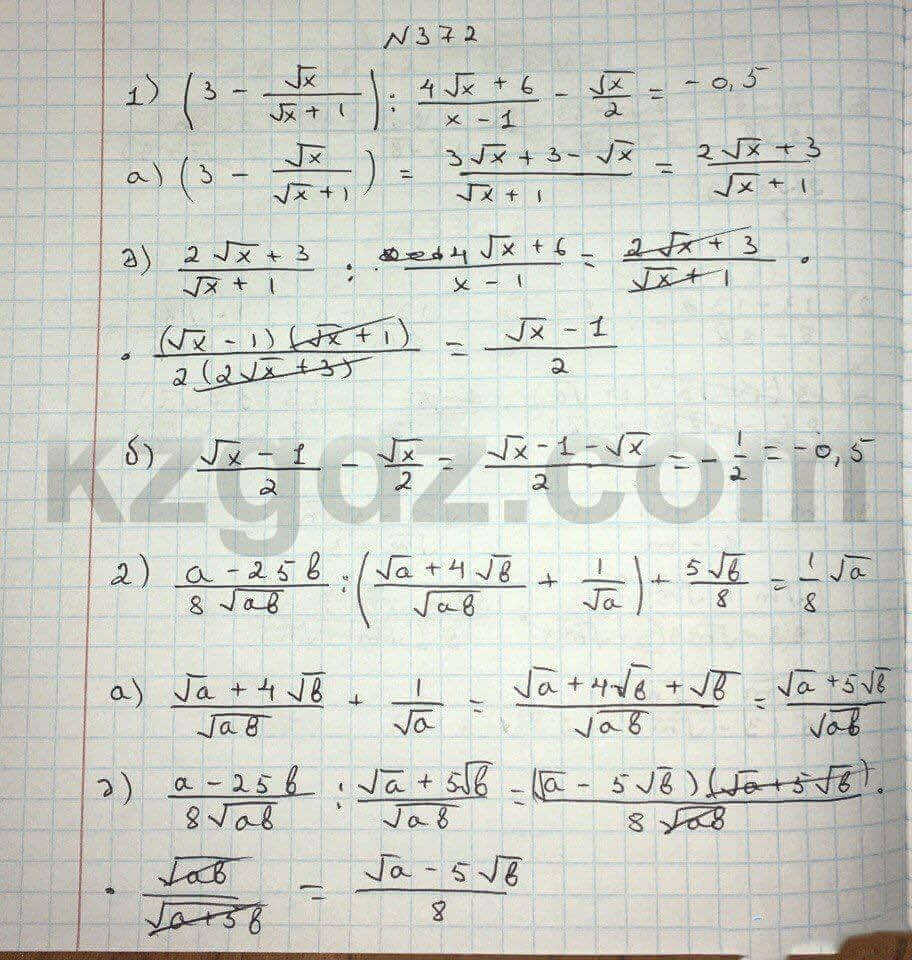 N 372
1) (3 - √x/(√x + 1)) : (4√x + 6)/(x - 1) - √x/2 = -0,5
а) (3 - √x/(√x + 1)) = (3√x + 3 - √x)/(√x + 1) = (2√x + 3)/(√x + 1)
д) (2√x + 3)/(√x + 1) : (4√x + 6)/(x - 1) = (2√x + 3)/(√x + 1) ·
· (√x - 1)(√x + 1)/2(2√x + 3) = (√x - 1)/2
б) (√x - 1)/2 - √x/2 = (√x - 1 - √x)/2 = -1/2 = -0,5
kzgdz.com
2) (a - 25b)/8√ab : ((√a + 4√b)/√ab + 1/√a) + 5√b/8 = 1/8 √a
а) (√a + 4√b)/√ab + 1/√a = (√a + 4√b + √b)/√ab = (√a + 5√b)/√ab
д) (a - 25b)/8√ab : (√a + 5√b)/√ab = (√a - 5√b)(√a + 5√b)/8√ab ·
· √ab/√(a + 5b) = (√a - 5√b)/8